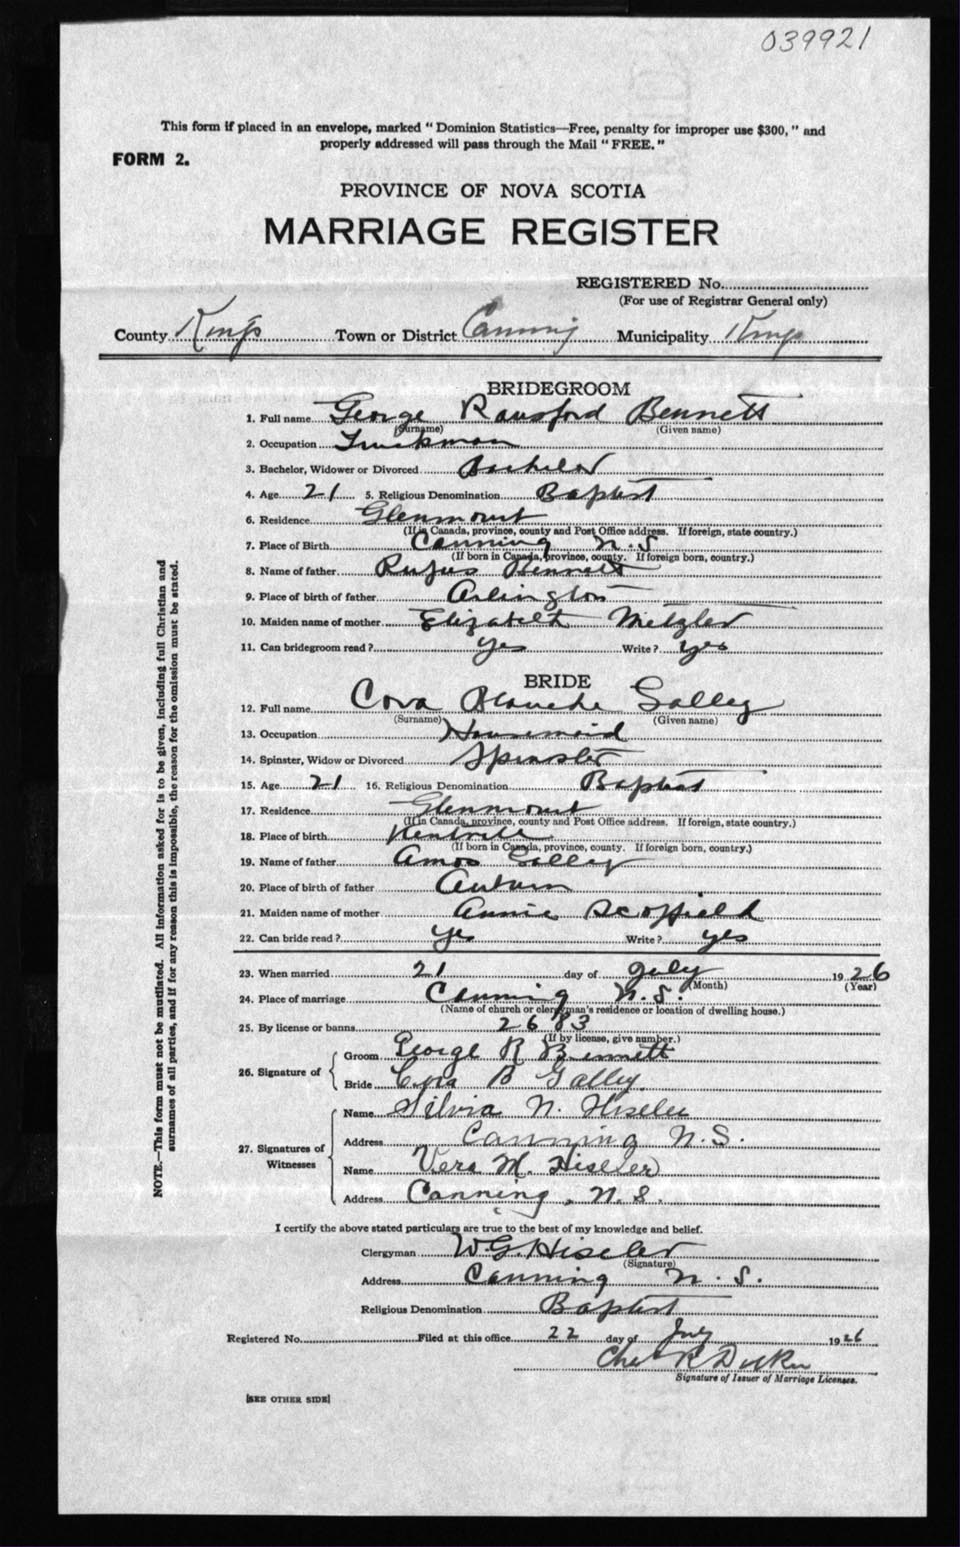 039921
This form if placed in an envelope, marked "Dominion Statistics—Free, penalty for improper use $300," and
properly addressed will pass through the Mail "FREE."
FORM 2.
PROVINCE OF NOVA SCOTIA
MARRIAGE REGISTER
REGISTERED No.
(For use of Registrar General only)
County Kings Town or District Canning Municipality Kings
BRIDEGROOM
1. Full name George Ransford Bennett
(Surname) (Given name)
2. Occupation Truckman
3. Bachelor, Widower or Divorced Bachelor
4. Age 21 5. Religious Denomination Baptist
6. Residence Glenmount
(If in Canada, province, county and Post Office address. If foreign, state country.)
7. Place of Birth Canning N S
(If born in Canada, province, county. If foreign born, country.)
8. Name of father Rufus Bennett
9. Place of birth of father Arlington
10. Maiden name of mother Elizabeth Metzler
11. Can bridegroom read? yes Write? yes
BRIDE
12. Full name Cora Blanche Galley
(Surname) (Given name)
13. Occupation Housemaid
14. Spinster, Widow or Divorced Spinster
15. Age 21 16. Religious Denomination Baptist
17. Residence Glenmount
(If in Canada, province, county and Post Office address. If foreign, state country.)
18. Place of birth Kentville
(If born in Canada, province, county. If foreign born, country.)
19. Name of father Amos Galley
20. Place of birth of father
21. Maiden name of mother Annie Scoffield
22. Can bride read? yes Write? yes
23. When married 21 day of July 1926
(Month) (Year)
24. Place of marriage Canning N.S.
(Name of church or clergyman's residence or location of dwelling house.)
25. By license or banns 2683
(If by license, give number.)
26. Signature of
Groom George R Bennett
Bride Cora B Galley
27. Signatures of Witnesses
Name Silvia N. Hiseler
Address Canning N.S.
Name Vera M. Hiseler
Address Canning, N.S.
I certify the above stated particulars are true to the best of my knowledge and belief.
Clergyman W.G. Hiseler
(Signature)
Address Canning N.S.
Religious Denomination Baptist
Registered No. Filed at this office 22 day of July 1926
Signature of Issuer of Marriage Licenses.
[SEE OTHER SIDE]
NOTE.—This form must not be mutilated. All information asked for is to be given, including full Christian and
surnames of all parties, and if for any reason this is impossible, the reason for the omission must be stated.